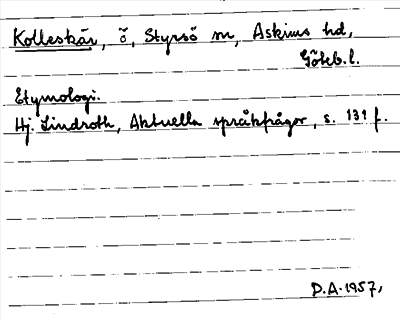 Kolleskär, ö, Styrsö sn, Askims hd,
Göteb. l.
Etymologi.
Hj. Lindroth, Aktuella språkfrågor, s. 131 f.
D.A. 1957,